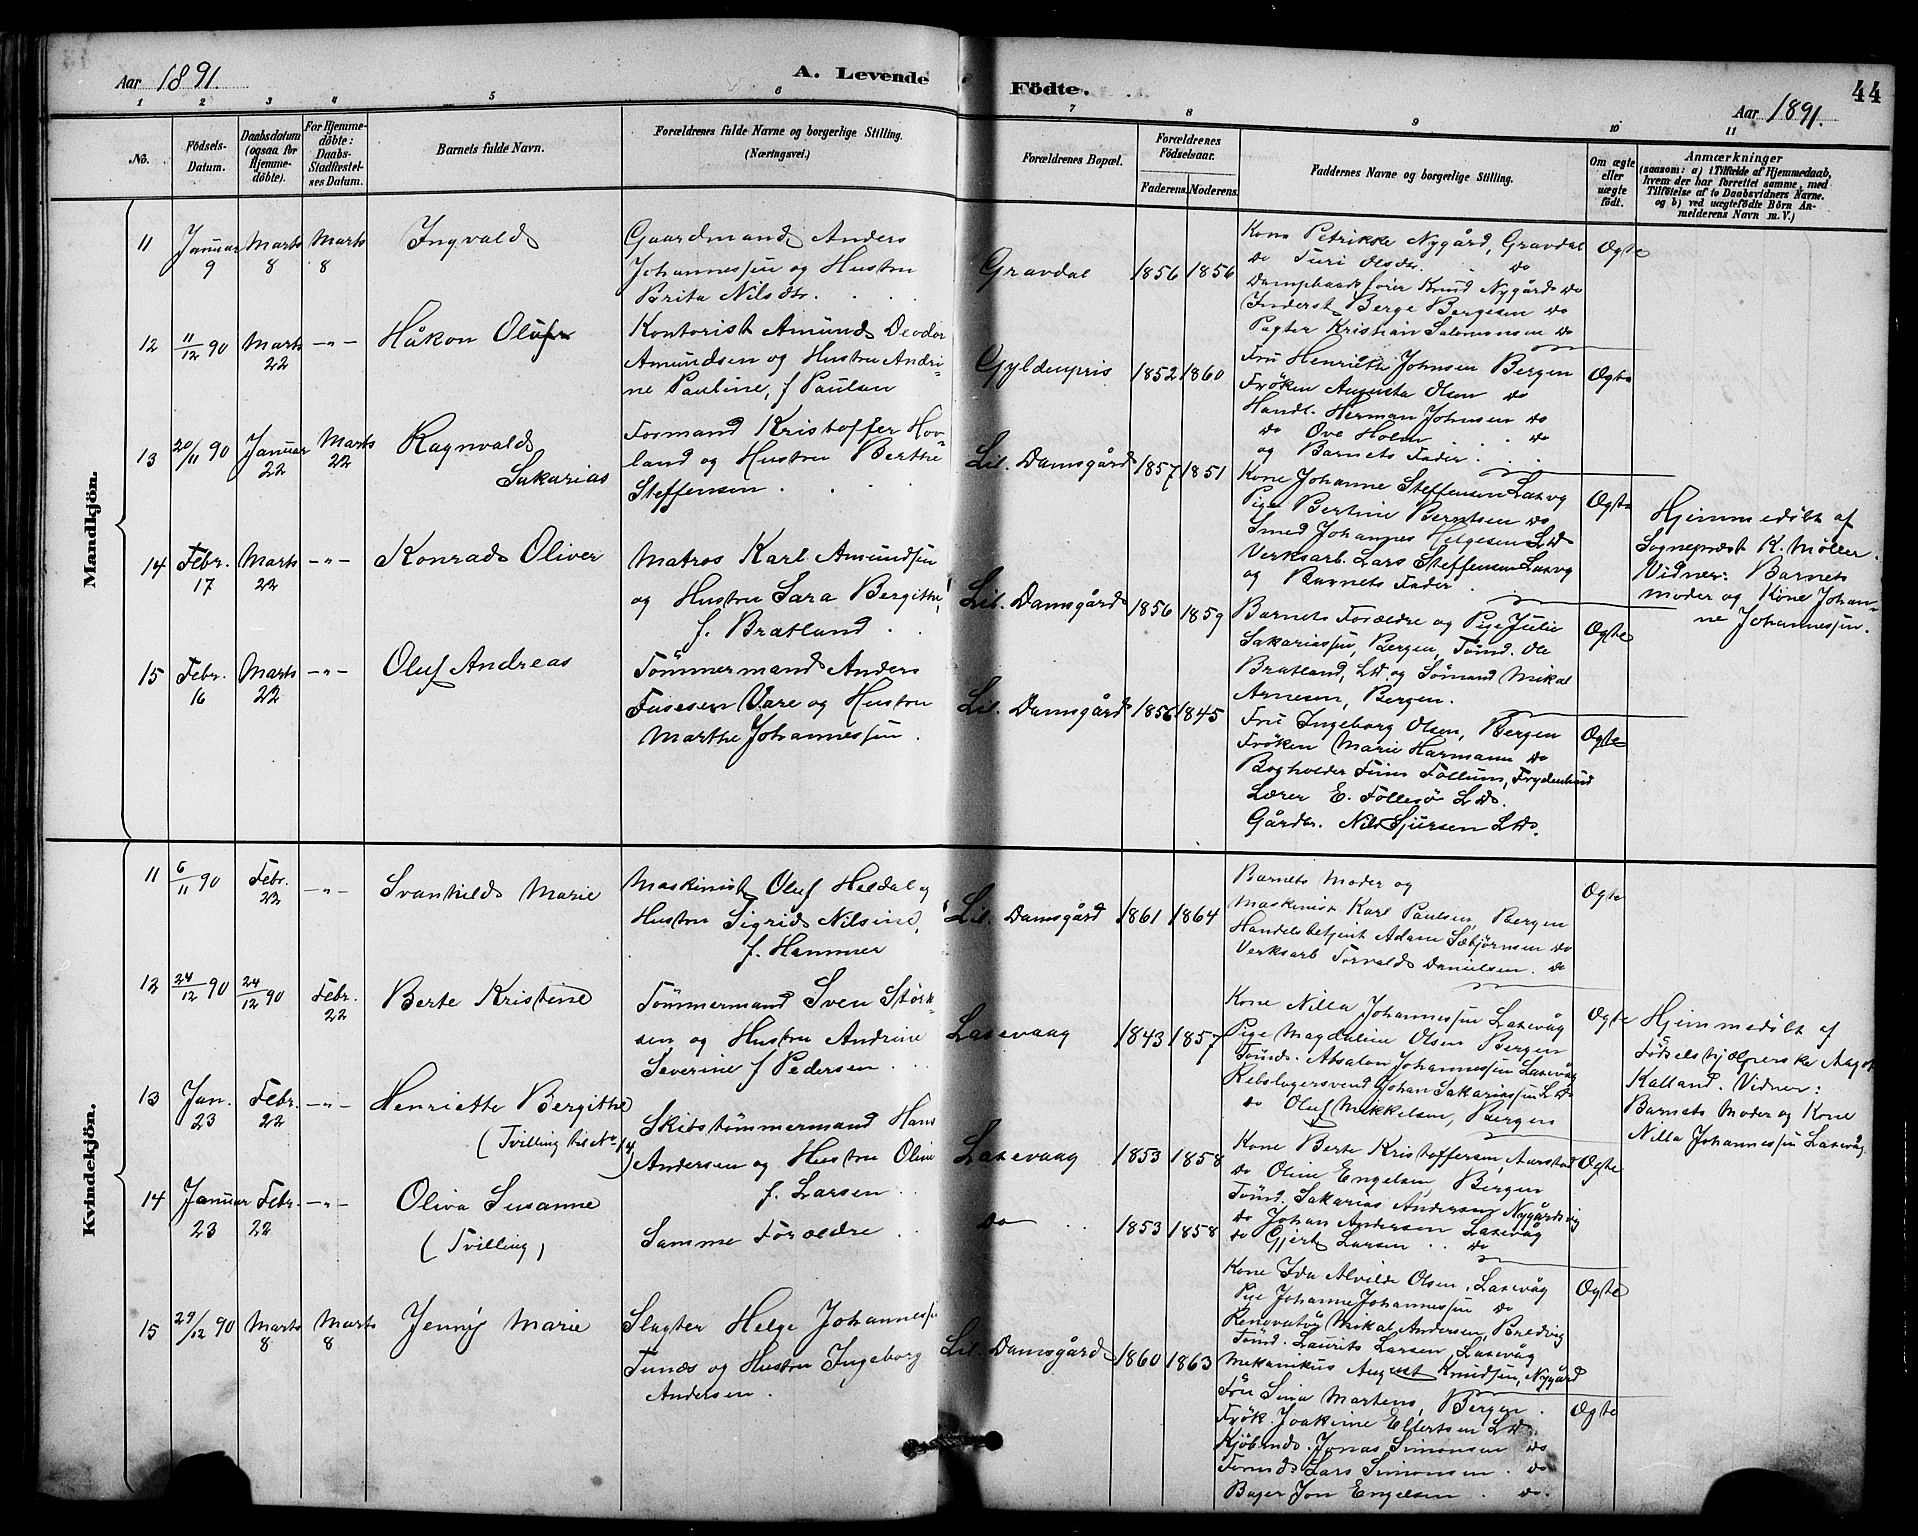 Aar 1891.
A. Levende
Födte.
44
Aar 1891.
1 2 3 4 5 6 7 8 9 10 11
No.
Födsels-
Datum.
Daabsdatum
(ogsaa for
Hjemme-
döbte).
For Hjemme-
döbte:
Daabs-
Stadfæstel-
ses Datum.
Barnets fulde Navn.
Forældrenes fulde Navne og borgerlige Stilling.
(Næringsvei.)
Forældrenes Bopæl.
Forældrenes
Födselsaar.
Faderens. Moderens.
Faddernes Navne og borgerlige Stilling.
Om ægte
eller
uægte
født.
Anmærkninger
(saasom: a) i Tilfælde af Hjemmedaab,
hvem der har forrettet samme, med
Tilföielse af to Daabsvidners Navne.
og b) ved uægtefödte Börn An-
melderens Navn m. V.)
Mandkjön.
11 Januar 9 Marts 8 Marts 8 Ingvald
Gaardmand Anders
Johannessen og Hustru
Brita Nilsdtr.
Gravdal 1856 1856
Kone Petrikke Nygård, Gravdal
do Turi Olsdtr. do
Dampbaadsfører Knud Nygård do
Inderst Berge Bergesen do
Pagter Kristian Salomonsen do
Ægte
12 11/12 90 Marts 22 -"- Håkon Oluf
Kontorist Amund Deodor
Amundsen og Hustru Andri-
ne Pauline, f Paulsen
Gyldenpris 1852 1860
Fru Henriette Johnsen Bergen
Frøken Augusta Olsen do
Handl. Herman Johnsen do
do Ove Holm do
og Barnets Fader.
Ægte
13 20/11 90 Januar 22 Marts 22 Ragnvald
Sakarias
Formand Kristoffer Hov-
land og Hustru Berthe
Steffensen
Lil. Damsgård 1857 1851
Kone Johanne Steffensen Laxvg
Pige Bertine Berntsen do
Smed Johannes Helgesen L.D.
Verksarb. Lars Steffensen Laxvg
og Barnets Fader.
Ægte
Hjemmedøbt af
Sognepræst K. Møller.
Vidner: Barnets
moder og Kone Johan-
ne Johannessen.
14 Febr. 17 Marts 22 -"- Konrad Oliver
Matros Karl Amundsen
og Hustru Sara Bergitte,
f. Bratland
Lil. Damsgård 1856 1859
Barnets Forældre og Pige Julie
Sakariassen, Bergen, Tømd. Ole
Bratland, L.D. og Sømand Mikal
Arnesen, Bergen.
Ægte
15 Febr. 16 Marts 22 -"- Oluf Andreas
Tömmermand Anders
Vare og Hustru
Marthe Johannessen.
Lil. Damsgård 1856 1845
Fru Ingeborg Olsen, Bergen
Frøken Marie Harmann do
Bogholder Follum,
Lærer E. Follesø L.D.
Gårdbr. Nils Sjursen L.D.
Ægte
Kvindekjön.
11 6/11 90 Febr. 22 -"- Svanhild Marie
Maskinist Oluf Hesdal og
Hustru Sigrid Nilsine,
f. Hammer
Lil. Damsgård 1861 1864
Barnets Moder og
Maskinist Karl Paulsen, Bergen
Handelsbetjent Adam Sæbjørnsen do
Verksarb Torvald Danielsen. do
Ægte
12 24/12 90 24/12 90 Febr. 22 Berte Kristine
Tömmermand Sven Störk-
sen og Hustru Andrine
Severine f Pedersen
Laxevaag 1843 1857
Kone Nilla Johannessen Laxevåg
Pige Magdalene Olsen Bergen
Tömdr. Absalon Johannessen Laxevåg
Rebslagersvend Johan Sakariassen L.D.
do Oluf Mikkelsen, Bergen
Ægte
Hjemmedøbt af
Fødselshjælperske Aagot
Kalland. Vidner:
Barnets Moder og Kone
Nilla Johannessen Laxevåg
13 Jan. 23 Febr. 22 -"- Henriette Bergitte
(Tvilling til No 14)
Skibstömmermand Hans
Andersen og Hustru Oline
f. Larsen
Laxevaag 1853 1858
Kone Berte Kristoffersen, Aarstad
do Oline Engelsen, Bergen
Tömd. Sakarias Andersen Nygårdsvig
do Johan Andersen Laxevåg
do Gjert Larsen do
Ægte
14 Januar 23 Febr. 22 -"- Oliva Susanne
(Tvilling)
Samme Forældre
do 1853 1858
Kone Ida Alvilde Olsen, Laxevåg
Pige Johanne Johannessen do
Mikal Andersen Bredvig
Tömd. Laurits Larsen, Laxevåg
Mekanikus August Knudsen, Nygård
Ægte
15 29/12 90 Marts 8 Marts 8 Jenny Marie
Slagter Helge Johannessen
Tunæs og Hustru Ingeborg
Andersen.
Lil. Damsgård 1860 1863
Fru Sina Martens, Bergen
Frök. Joakime Elfertsen L.D.
Kjöbmd. Jonas Simonsen do
Lars Simonsen do
Bager Jon Engelsen do
Ægte